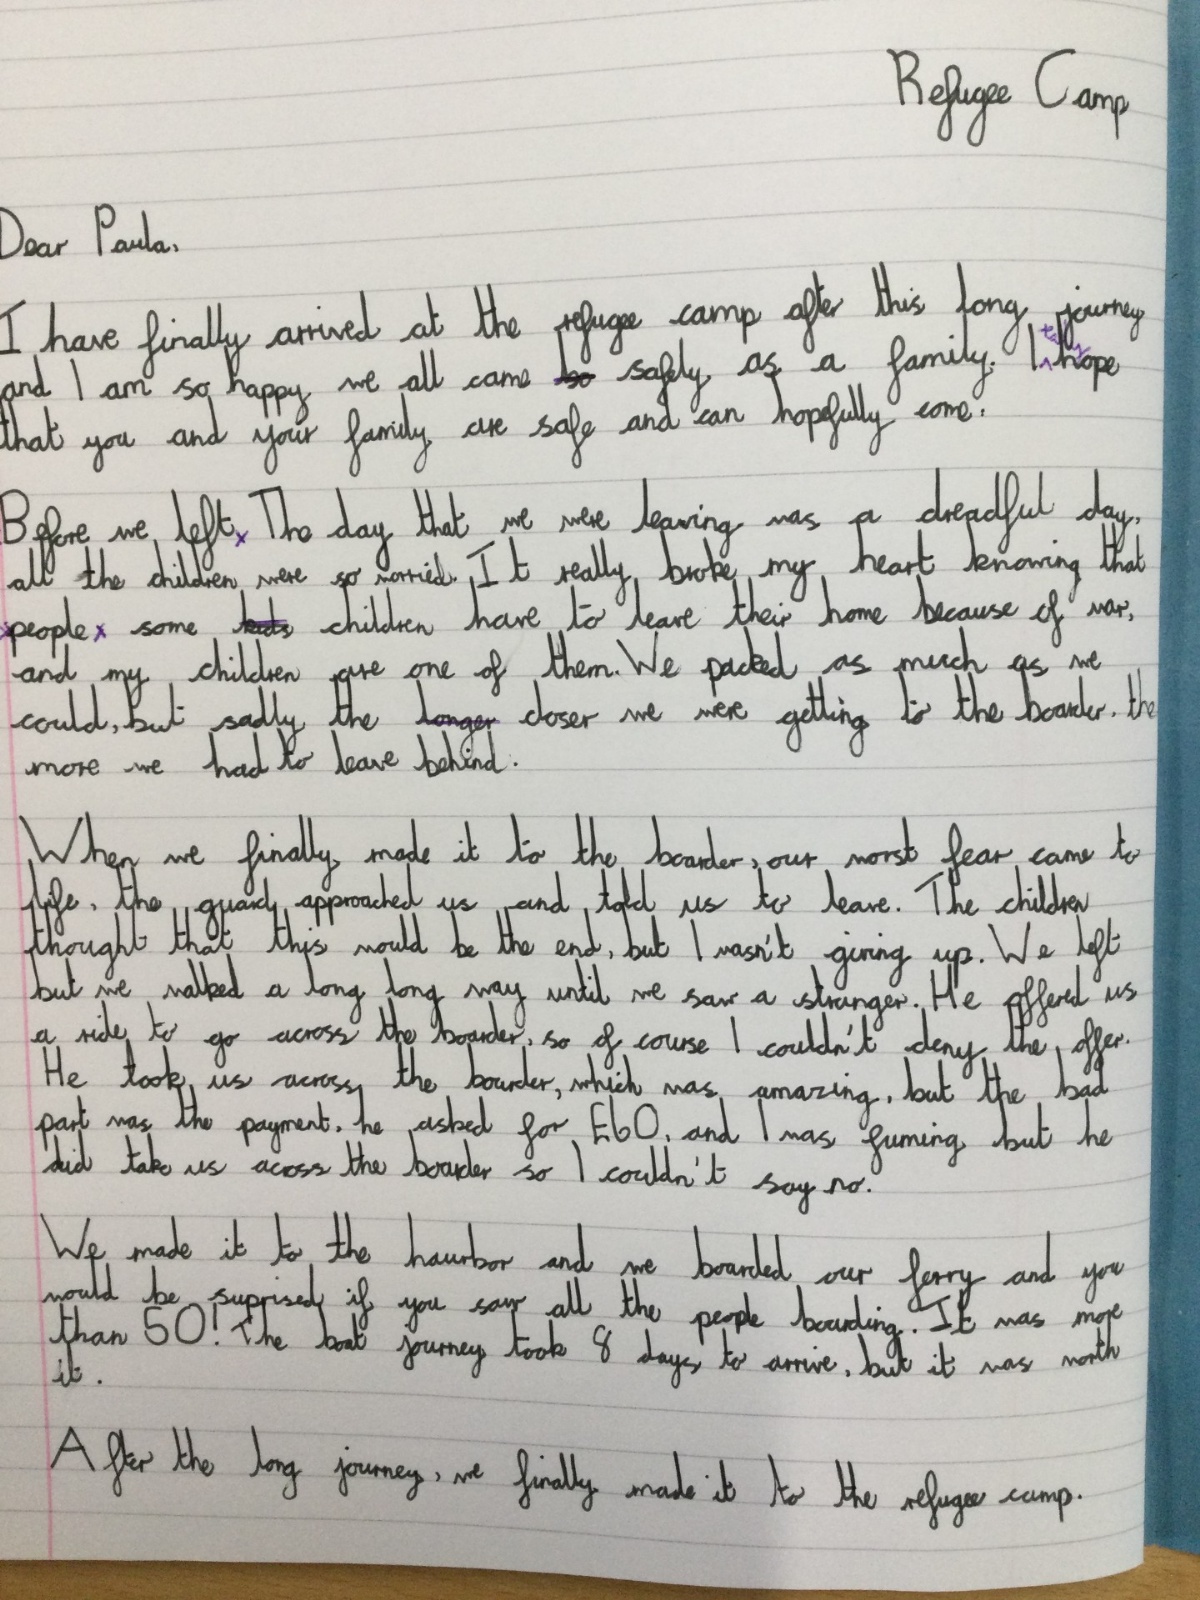 Refugee Camp
Dear Paula,
I have finally arrived at the refugee camp after this long journey
and I am so happy we all came so safely as a family. I really hope
that you and your family are safe and can hopefully come.
Before we left, The day that we were leaving was a dreadful day,
all the children were so worried. It really broke my heart knowing that
people some kids children have to leave their home because of war,
and my children are one of them. We packed as much as we
could, but sadly the longer closer we were getting to the boarder, the
more we had to leave behind.
When we finally made it to the boarder, our worst fear came to
life, the guard approached us and told us to leave. The children
thought that this would be the end, but I wasn't giving up. We left
but we walked a long long way until we saw a stranger. He offered us
a ride to go across the boarder, so of course I couldn't deny the offer.
He took us across the boarder, which was amazing, but the bad
part was the payment, he asked for £60, and I was fuming but he
did take us across the boarder so I couldn't say no.
We made it to the haurbor and we boarded our ferry and you
would be suprised if you saw all the people boarding. It was more
than 50! The boat journey took 8 days to arrive, but it was worth
it.
After the long journey, we finally made it to the refugee camp.